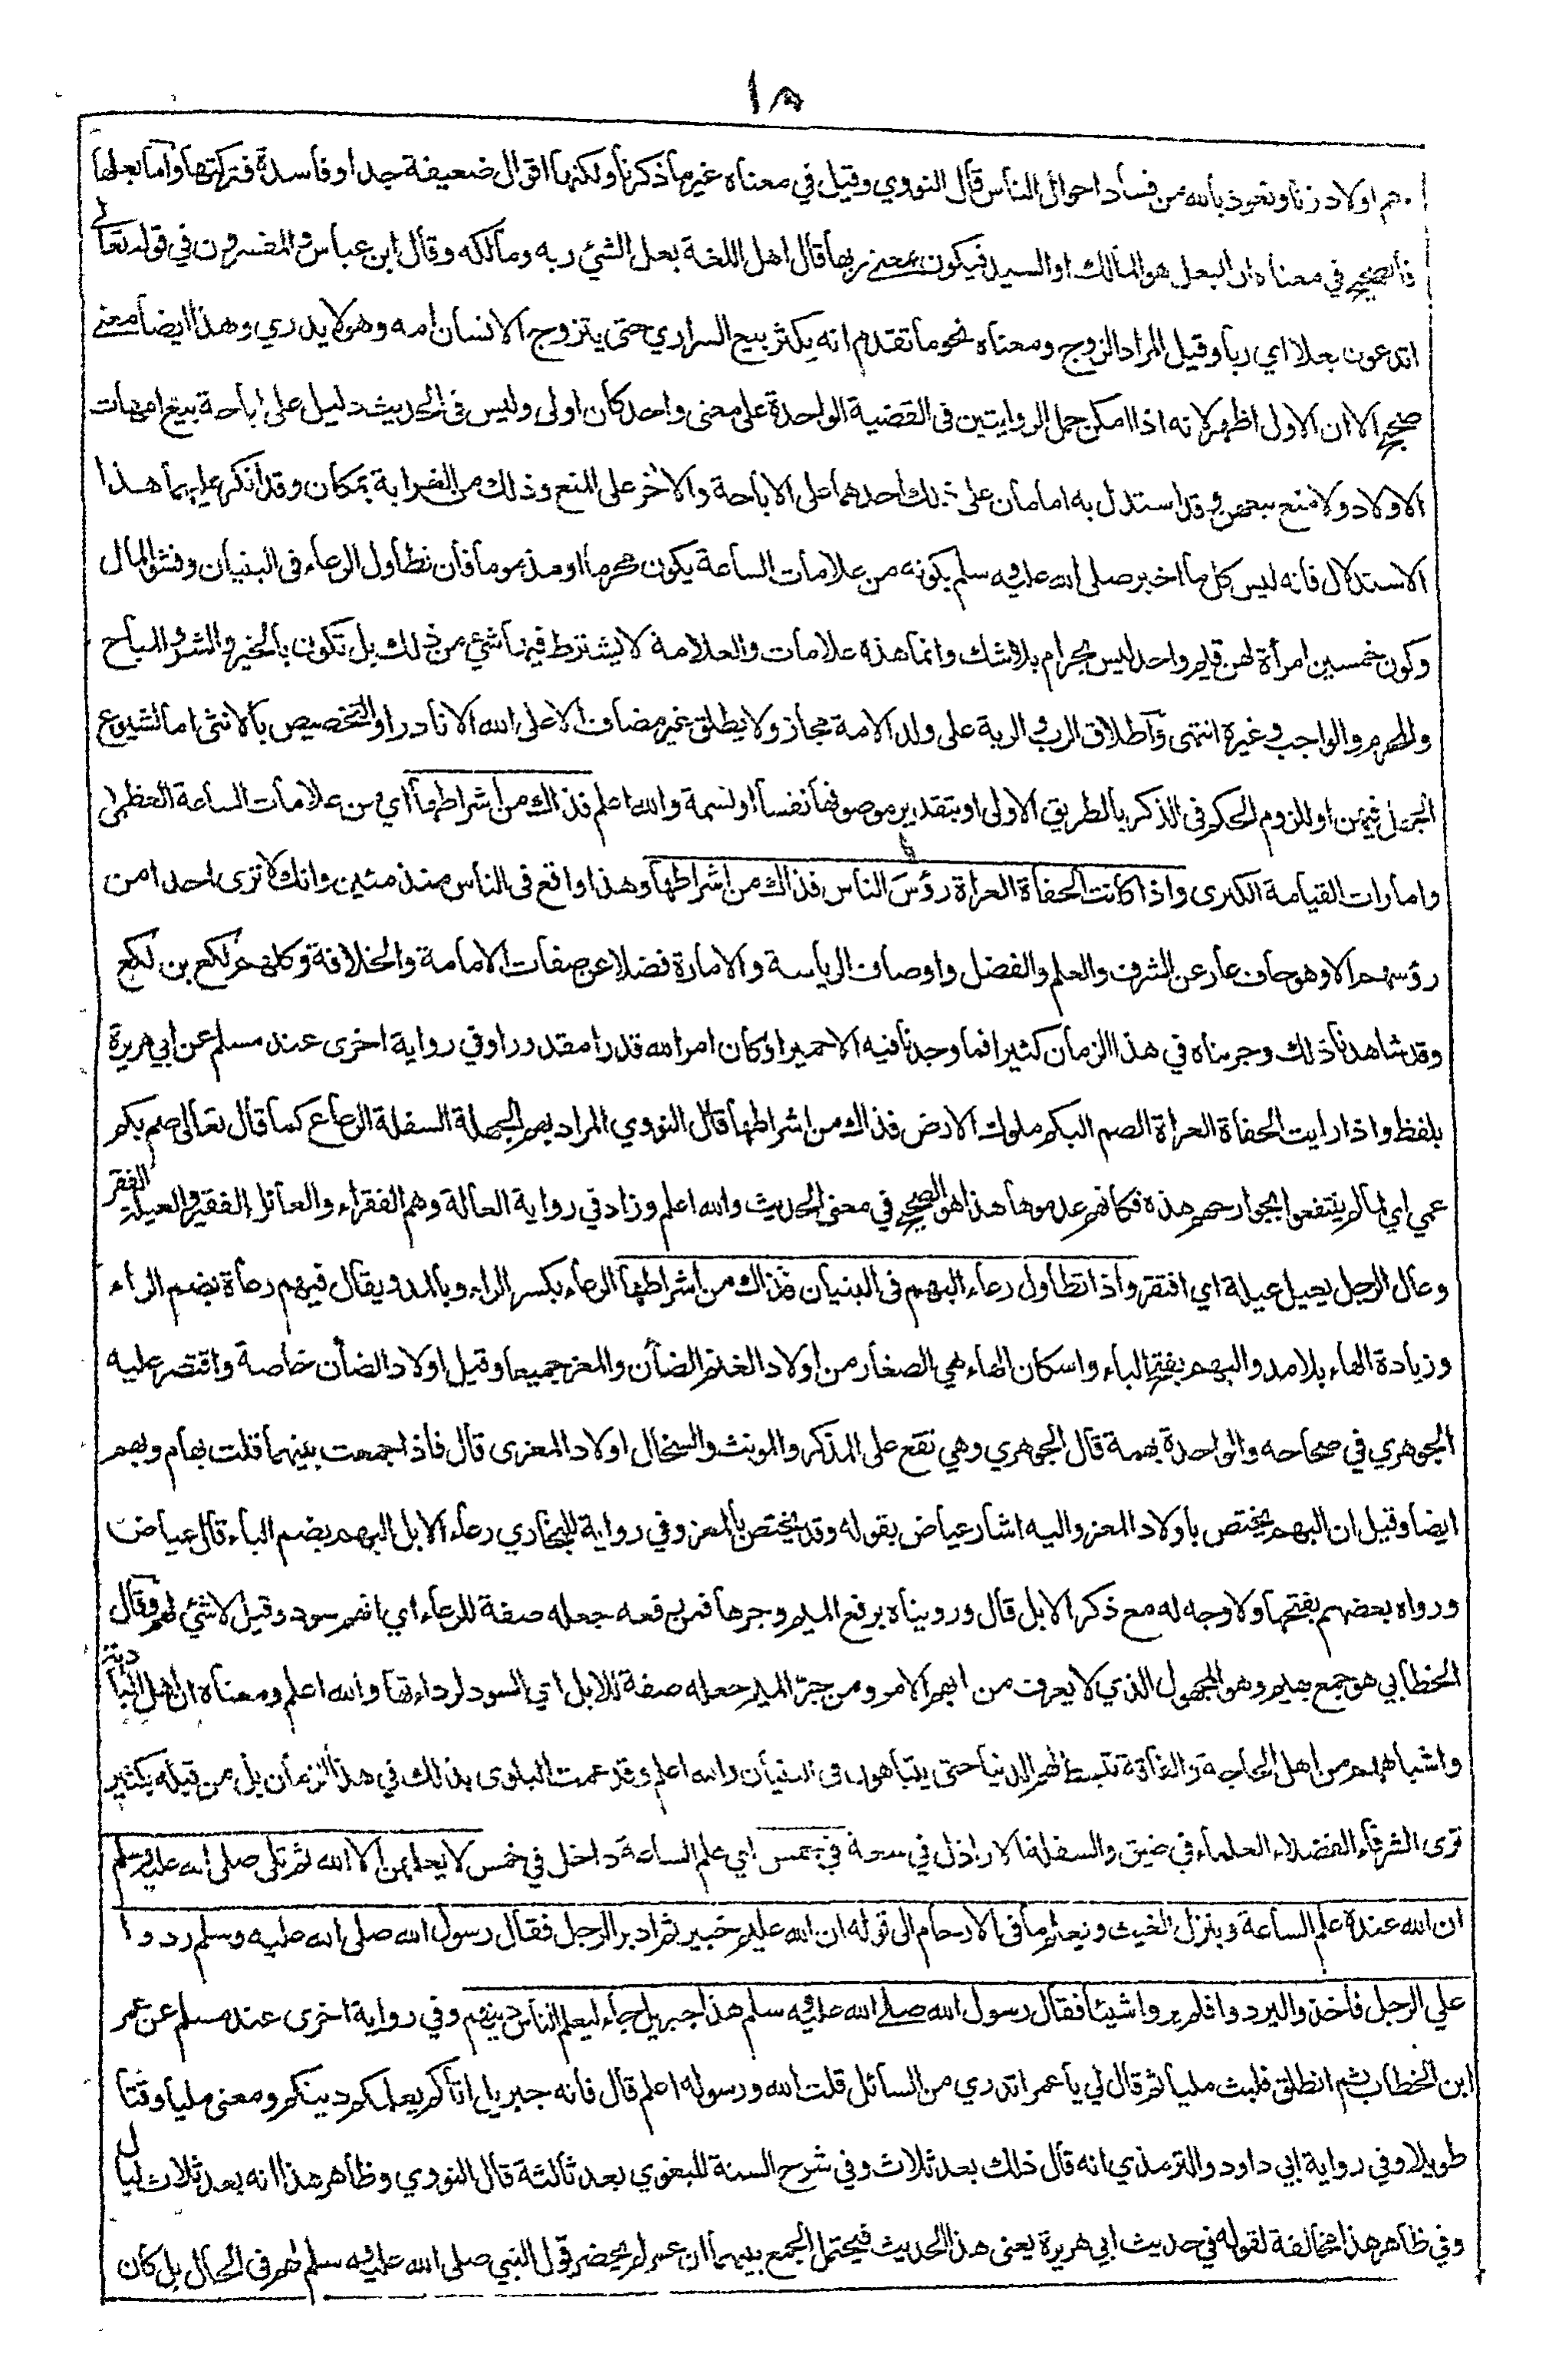 ١٨
هم اولاد زنا ونعوذ بالله من فساد احوال الناس قال النووي وقيل في معناه غير ما ذكرنا ولكنها اقوال ضعيفة جدا وفاسدة فتركتها واما بعلها
فالصحيح في معناه ان البعل هو المالك او السيد فيكون بمعنى ربها قال اهل اللغة بعل الشئ ربه ومالكه وقال ابن عباس والمفسرون في قوله تعالى
اتدعون بعلا اي ربا وقيل المراد الزوج ومعناه نحو ما تقدم انه يكثر بيع السراري حتى يتزوج الانسان امه وهو لا يدري وهذا ايضا معنى
صحيح الا ان الاول اظهر لانه اذا امكن حمل الروايتين في القضية الواحدة على معنى واحد كان اولى وليس في الحديث دليل على اباحة بيع امهات
الاولاد ولا منع بيعهن وقد استدل به امامان على ذلك احدهما على الاباحة والاخر على المنع وذلك من الغرابة بمكان وقد انكر عليهما هذا
الاستدلال فانه ليس كل ما اخبر صلى الله عليه وسلم بكونه من علامات الساعة يكون محرما او مذموما فان تطاول الرعاء في البنيان وفشو المال
وكون خمسين امرأة لهن قيم واحد ليس بحرام بلا شك وانما هذه علامات والعلامة لا يشترط فيها شئ من ذلك بل تكون بالخير والشر والمباح
والمحرم والواجب وغيره انتهى واطلاق الرب والربة على ولد الامة مجاز ولا يطلق غير مضاف الا على الله الا نادرا والتخصيص بالانثى اما لشيوع
الجهل فيهن او للزوم الحكم في الذكر بالطريق الاولى او بتقدير موصوفها نفسا او نسمة والله اعلم فذاك من اشراطها اي من علامات الساعة العظمى
وامارات القيامة الكبرى واذا كانت الحفاة العراة رؤس الناس فذاك من اشراطها وهذا واقع في الناس منذ مئين وانك لا ترى احدا من
رؤسهم الا وهو حاف عار عن الشرف والعلم والفضل واوصاف الرياسة والامارة فضلا عن صفات الامامة والخلافة وكلهم لكع بن لكع
وقد شاهدنا ذلك وجربناه في هذا الزمان كثيرا فما وجدنا فيه الا حميرا وكان امر الله قدرا مقدورا وفي رواية اخرى عند مسلم عن ابي هريرة
بلفظ واذا رايت الحفاة العراة الصم البكم ملوك الارض فذاك من اشراطها قال النووي المراد بهم الجهلة السفلة الرعاع كما قال تعالى صم بكم
عمي اي لما لم ينتفعوا بجوارحهم هذه فكانهم عدموها هذا هو الصحيح في معنى الحديث والله اعلم وزاد في رواية العالة وهم الفقراء والعائل الفقير والعيلة الفقر
وعال الرجل يعيل عيلة اي افتقر واذا تطاول رعاء البهم في البنيان فذاك من اشراطها الرعاء بكسر الراء وبالمد ويقال فيهم رعاة بضم الراء
وزيادة الهاء بلا مد والبهم بفتح الباء واسكان الهاء هي الصغار من اولاد الغنم الضأن والمعز جميعا وقيل اولاد الضأن خاصة واقتصر عليه
الجوهري في صحاحه والواحدة بهمة قال الجوهري وهي تقع على المذكر والمونث والسخال اولاد المعزى قال فاذا جمعت بينهما قلت بهام وبهم
ايضا وقيل ان البهم يختص باولاد المعز واليه اشار عياض بقوله وقد يختص بالمعز وفي رواية للبخاري رعاء الابل البهم بضم الباء قال عياض
ورواه بعضهم بفتحها ولا وجه له مع ذكر الابل قال ورويناه برفع الميم وجرها فمن رفعه جعله صفة للرعاء اي انهم سود وقيل لا شئ لهم وقال
الخطابي هو جمع بهيم وهو المجهول الذي لا يعرف من ابهم الامر ومن جر الميم جعله صفة للابل اي السود لرداءتها والله اعلم ومعناه ان اهل البادية
واشباههم من اهل الحاجة والفاقة تبسط لهم الدنيا حتى يتباهون في البنيان والله اعلم وقد عمت البلوى بذلك في هذا الزمان بل من قبله بكثير
ترى الشرفاء الفضلاء العلماء في ضيق والسفلة الاراذل في سعة في خمس اي علم الساعة داخل في خمس لا يعلمهن الا الله ثم تلى صلى الله عليه وسلم
ان الله عنده علم الساعة وينزل الغيث ويعلم ما في الارحام الى قوله ان الله عليم خبير ثم ادبر الرجل فقال رسول الله صلى الله عليه وسلم ردوا
علي الرجل فاخذوا ليردوا فلم يروا شيئا فقال رسول الله صلى الله عليه وسلم هذا جبريل جاء ليعلم الناس دينهم وفي رواية اخرى عند مسلم عن عمر
ابن الخطاب ثم انطلق فلبث مليا ثم قال لي يا عمر اتدري من السائل قلت الله ورسوله اعلم قال فانه جبريل اتاكم يعلمكم دينكم ومعنى مليا وقتا
طويلا وفي رواية ابي داود والترمذي انه قال ذلك بعد ثلاث وفي شرح السنة للبغوي بعد ثالثة قال النووي وظاهر هذا انه بعد ثلاث ليال
وفي ظاهر هذا مخالفة لقوله في حديث ابي هريرة يعني هذا الحديث فيحتمل الجمع بينهما ان عمر لم يحضر قول النبي صلى الله عليه وسلم لهم في الحال بل كان